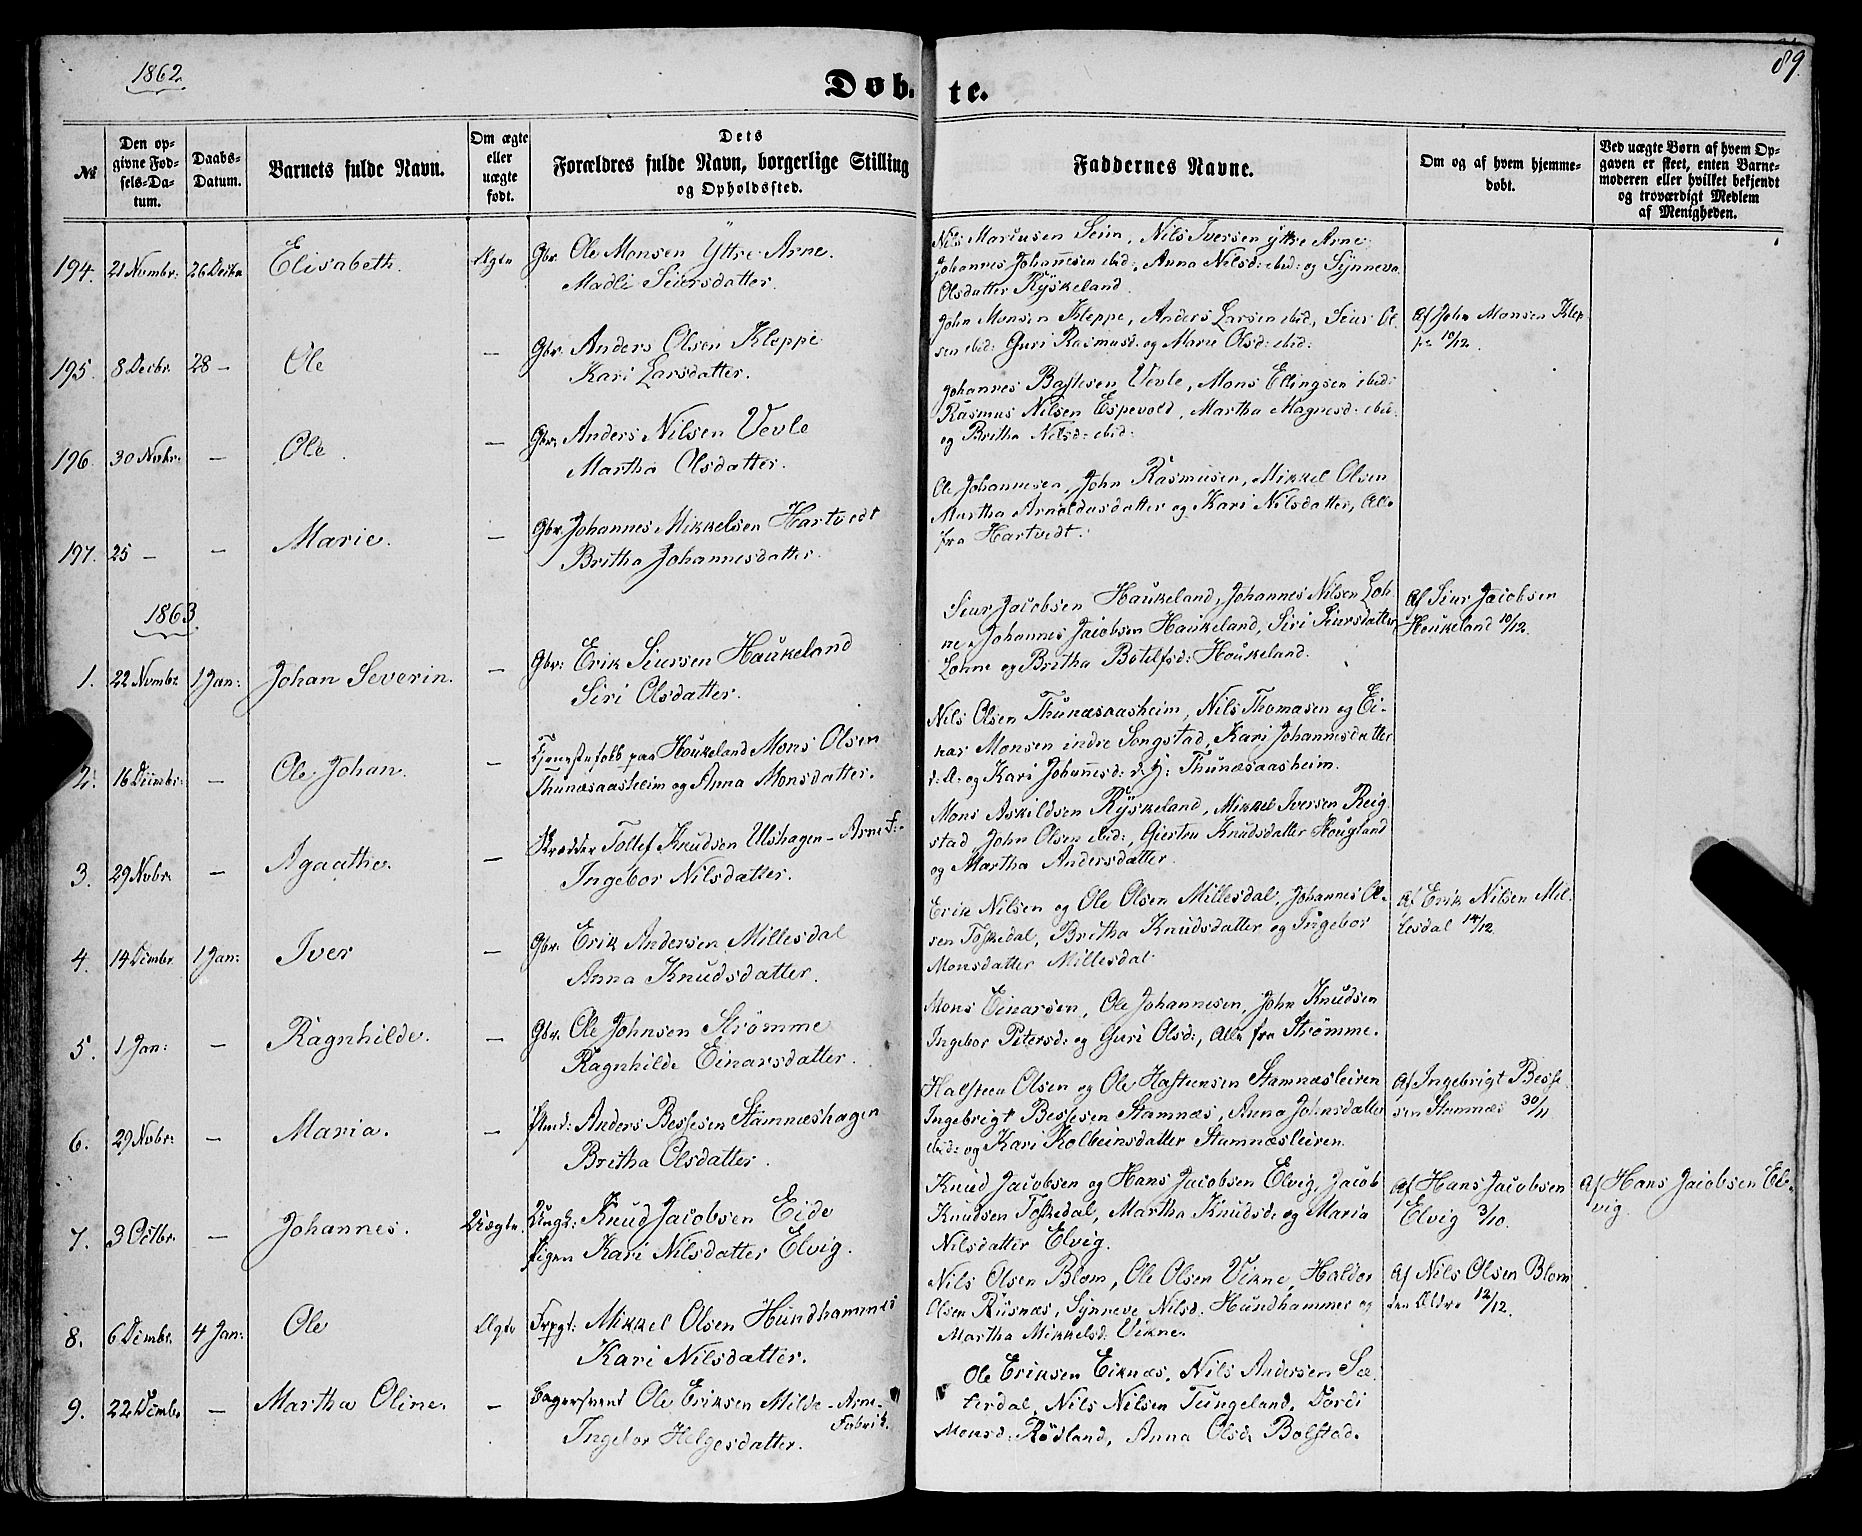 1862
89.
Døb-te.
№
Den op-
givne Fød-
sels-Da-
tum.
Daabs-
Datum.
Barnets fulde Navn.
Om ægte
eller
uægte
født.
Dets
Forældres fulde Navn, borgerlige Stilling
og Opholdssted.
Faddernes Navne.
Om og af hvem hjemme-
døbt.
Ved uægte Børn af hvem Op-
gaven er skeet, enten Barne-
moderen eller hvilket bekjendt
og troværdigt Medlem
af Menigheden.
194. 21 Novmbr: 26 Decbr Elisabeth. Ægte Gbr. Ole Monsen Yttre-Arne.
Madli Seiursdatter.
Nils Mariusen Seim, Nils Iversen yttre Arne
Johannes Johannesen ibid:, Anna Nilsd: ibid: og Synneva
Olsdatter Ryskeland.
195. 8 Decbr. 28 — Ole — Gbr. Anders Olsen Kleppe
Kari Larsdatter.
John Monsen Kleppe, Anders Larsen ibid, Seiur Ol-
sen ibid: Guri Rasmusd. og Marie Olsd: ibid:
Af John Monsen Klep
pe 10/12.
196. 30 Novbr: — Ole. — Gbr: Anders Nilsen Vevle
Martha Olsdatter.
Johannes BaStesen Vevle, Mons Ellingsen ibid:
Rasmus Nilsen Espevold, Martha Magnesd: ibid.
og Britha Nilsd: ibid:
197. 25 — — Marie. — Gbr. Johannes Mikkelsen Hartvedt
Britha Johannesdatter.
Ole Johannesen, John Rasmusen, Mikkel Olsen
Martha Arnoldusdatter og Kari Nilsdatter, Alle
fra Hartvedt.
1863.
1. 22 Novmbr 1 Jan: Johan Severin. — Gbr: Erik Seiursen Haukeland
Siri Olsdatter.
Seiur Jacobsen Haukeland, Johannes Nilsen Loh
ne, Johannes Jacobsen Haukeland, Siri Seiursdatter
Lohne og Britha Botelfsd: Houkeland.
Af Seiur Jacobsen
Houkeland 10/12.
2. 16 Decmbr: — Ole Johan. — Tjenestefolk paa Houkeland Mons Olsen
Thunæsaasheim og Anna Monsdatter.
Nils Olsen Thunæsaasheim, Nils Thomasen og Ei-
nar Monsen indre Songstad, Kari Johannesdatter
d: Æ: og Kari Johannesd: d. y: Thunæsaasheim.
3. 29 Novbr. — Agaathe. — Skrædder Tollef Knudsen Ulshagen - Arne F:
Ingebor Nilsdatter.
Mons Askildsen Ryskeland, Mikkel Iversen Reig
stad, John Olsen ibid:, Giertru Knudsdatter Hougland
og Martha Andersdatter.
4. 14 Decmbr 1 Jan: Iver — Gbr. Erik Andersen Millesdal
Anna Knudsdatter.
Erik Nilsen og Ole Olsen Millesdal, Johannes Ol-
sen Toskedal, Britha Knudsdatter og Ingebor
Monsdatter Millesdal.
Af Erik Nilsen Mil-
lesdal 14/12.
5. 1 Jan: — Ragnhilde. — Gbr. Ole Johnsen Strømme
Ragnhilde Einarsdatter.
Mons Einarsen, Ole Johannesen, John Knudsen
Ingebor Petersd: og Guri Olsd:, Alle fra Strømme.
6. 29 Novbr: — Maria. — Anders Bessesen Stamnæshagen
Britha Olsdatter.
Halsteen Olsen og Ole Hasteensen Stamnæsleiren
Ingebrigt Bessesen Stamnæs, Anna Johnsdatter
ibid: og Kari Kolbeinsdatter Stamnæsleiren.
Af Ingebrigt Besse-
sen Stamnæs 30/11
7. 3 Octbr. — Johannes. Uægte. Ungk: Knud Jacobsen Eide
Pigen Kari Nilsdatter Elvig.
Knud Jacobsen og Hans Jacobsen Elvig, Jacob
Knudsen Toskedal, Martha Knudsd: og Maria
Nilsdatter Elvig.
Af Hans Jacobsen
Elvig 3/10.
Af Hans Jacobsen El-
vig.
8. 6 Decmbr. 4 Jan: Ole Ægte Frpgt: Mikkel Olsen Hundhammer
Kari Nilsdatter.
Nils Olsen Blom, Ole Olsen Vikne, Haldor
Olsen Rusnæs, Synneve Nilsd. Hundhammer og
Martha Mikkelsd: Vikne.
Af Nils Olsen Blom
den Ældre 12/12.
9. 22 Decmbr — Martha Oline. — Bagersvend Ole Eriksen Milde - Arne-
Fabrik.
Ingebor Helgesdatter.
Ole Eriksen Eiknæs, Nils Andersen Sæ-
terdal, Nils Nilsen Tungeland, Dordi
Monsd: Rødland, Anna Olsd: Bolstad.